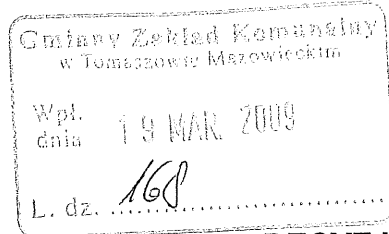 Gminny Zakład Komunalny
w Tomaszowie Mazowieckim
Wpł.
dnia 19 MAR. 2009
L. dz. 168